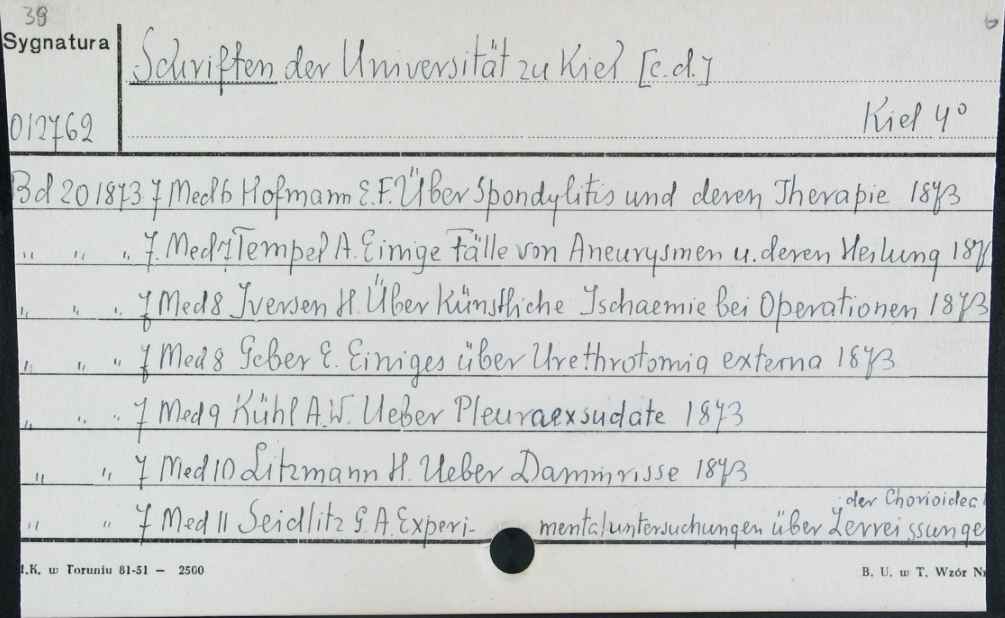 39
6
Sygnatura
Schriften der Universität zu Kiel [c.d.]
012762
Kiel 4°
Bd 20 1873 7 Med 6 Hofmann E.F. Über Spondylitis und deren Therapie 1873
" " " 7. Med 7 Tempel A. Einige Fälle von Aneurysmen u. deren Heilung 187
" " " 7 Med 8 Iversen H. Über Künstliche Ischaemie bei Operationen 1873
" " " 7 Med 8 Geber E. Einiges über Urethrotomia externa 1873
" " " 7 Med 9 Kühl A.W. Ueber Pleuraexsudate 1873
" " 7 Med 10 Litzmann H. Ueber Dammrisse 1873
" " 7 Med 11 Seidlitz G.A. Experi- mentaluntersuchungen über Zerreissunge
der Chorioidea
.K. w Toruniu 81-51 — 2500
B. U. w T. Wzór Nr